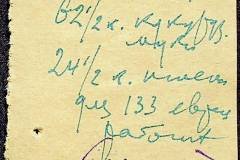 62 1/2 к. кукуруз.
муки
24 1/2 к. пшена
для 133 евреев
работ